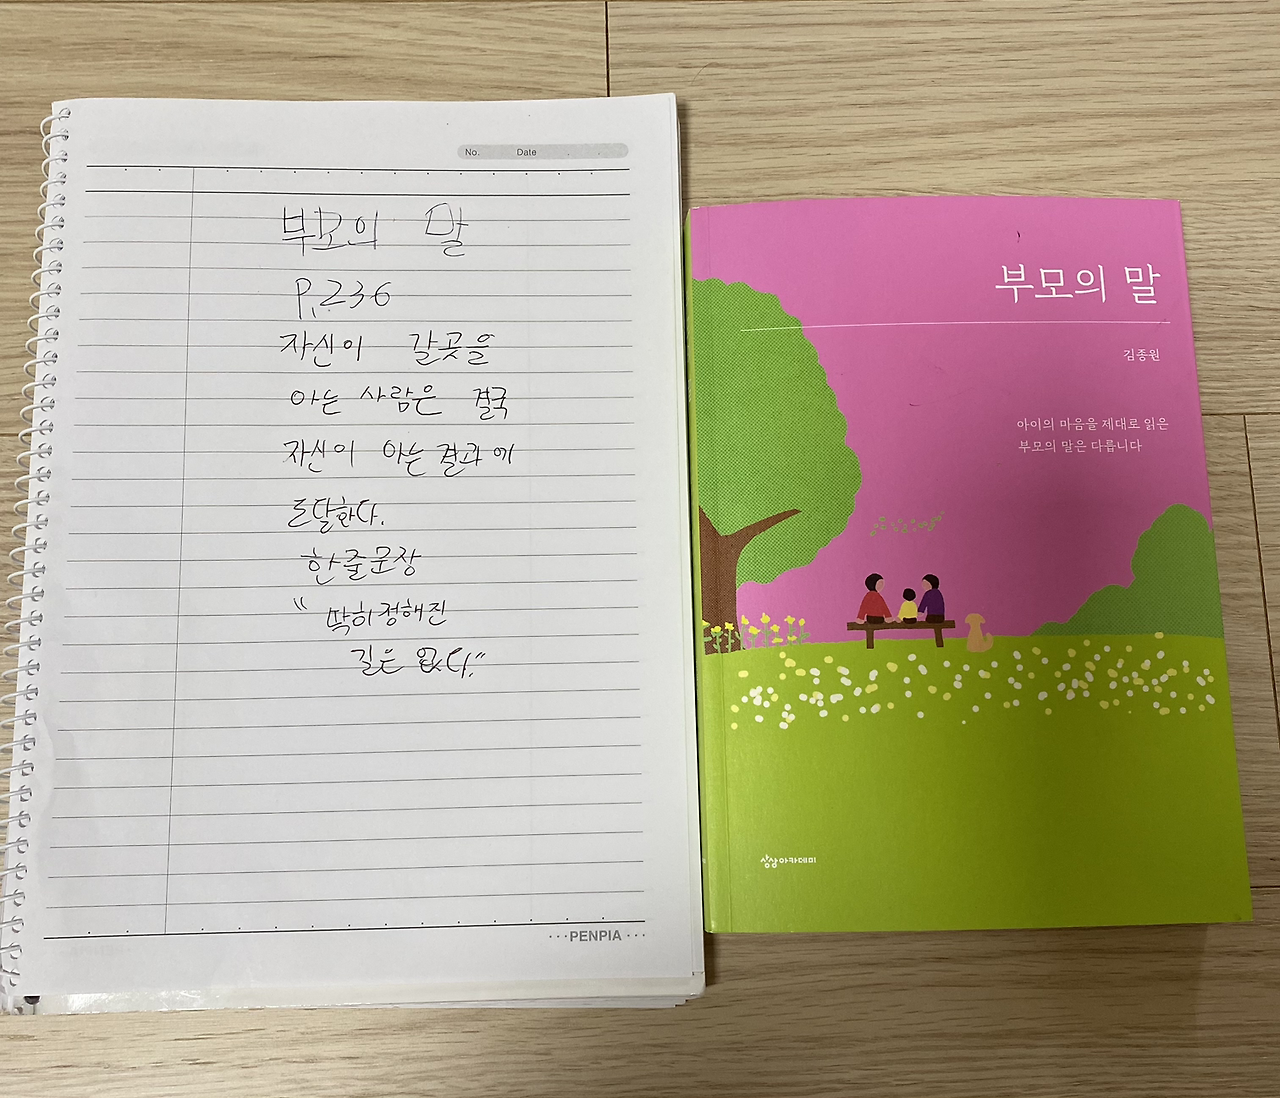 No. Date
부모의 말
P.236
자신이 갈곳을
아는 사람은 결국
자신이 아는 결과에
도달한다.
한줄문장
"딱히 정해진
길은 없다."
PENPIA
부모의 말
김종원
아이의 마음을 제대로 읽은
부모의 말은 다릅니다
상상아카데미